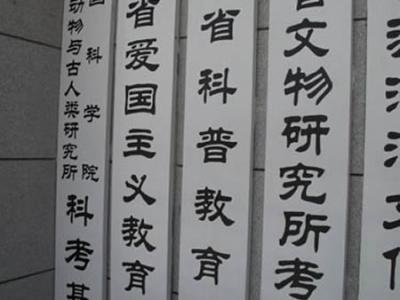 国科学院
动物与古人类研究所
科考基
省爱国主义教育
省科普教育
省文物研究所考